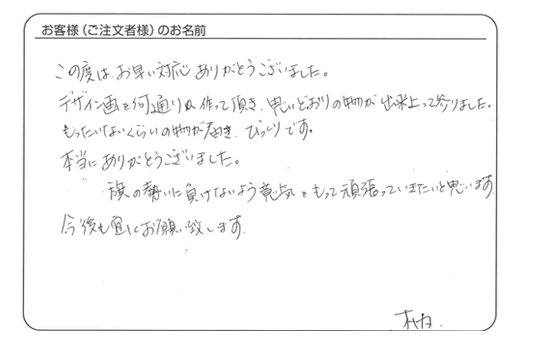 お客様(ご注文者様)のお名前
この度は、お早い対応ありがとうございました。
デザイン画も何通りか作って頂き、思いどおりの物が出来上って参りました。
もったいないくらいの物が届き、びっくりです。
本当にありがとうございました。
旗の勢いに負けないよう意気をもって頑張っていきたいと思います。
今後も宜しくお願い致します。